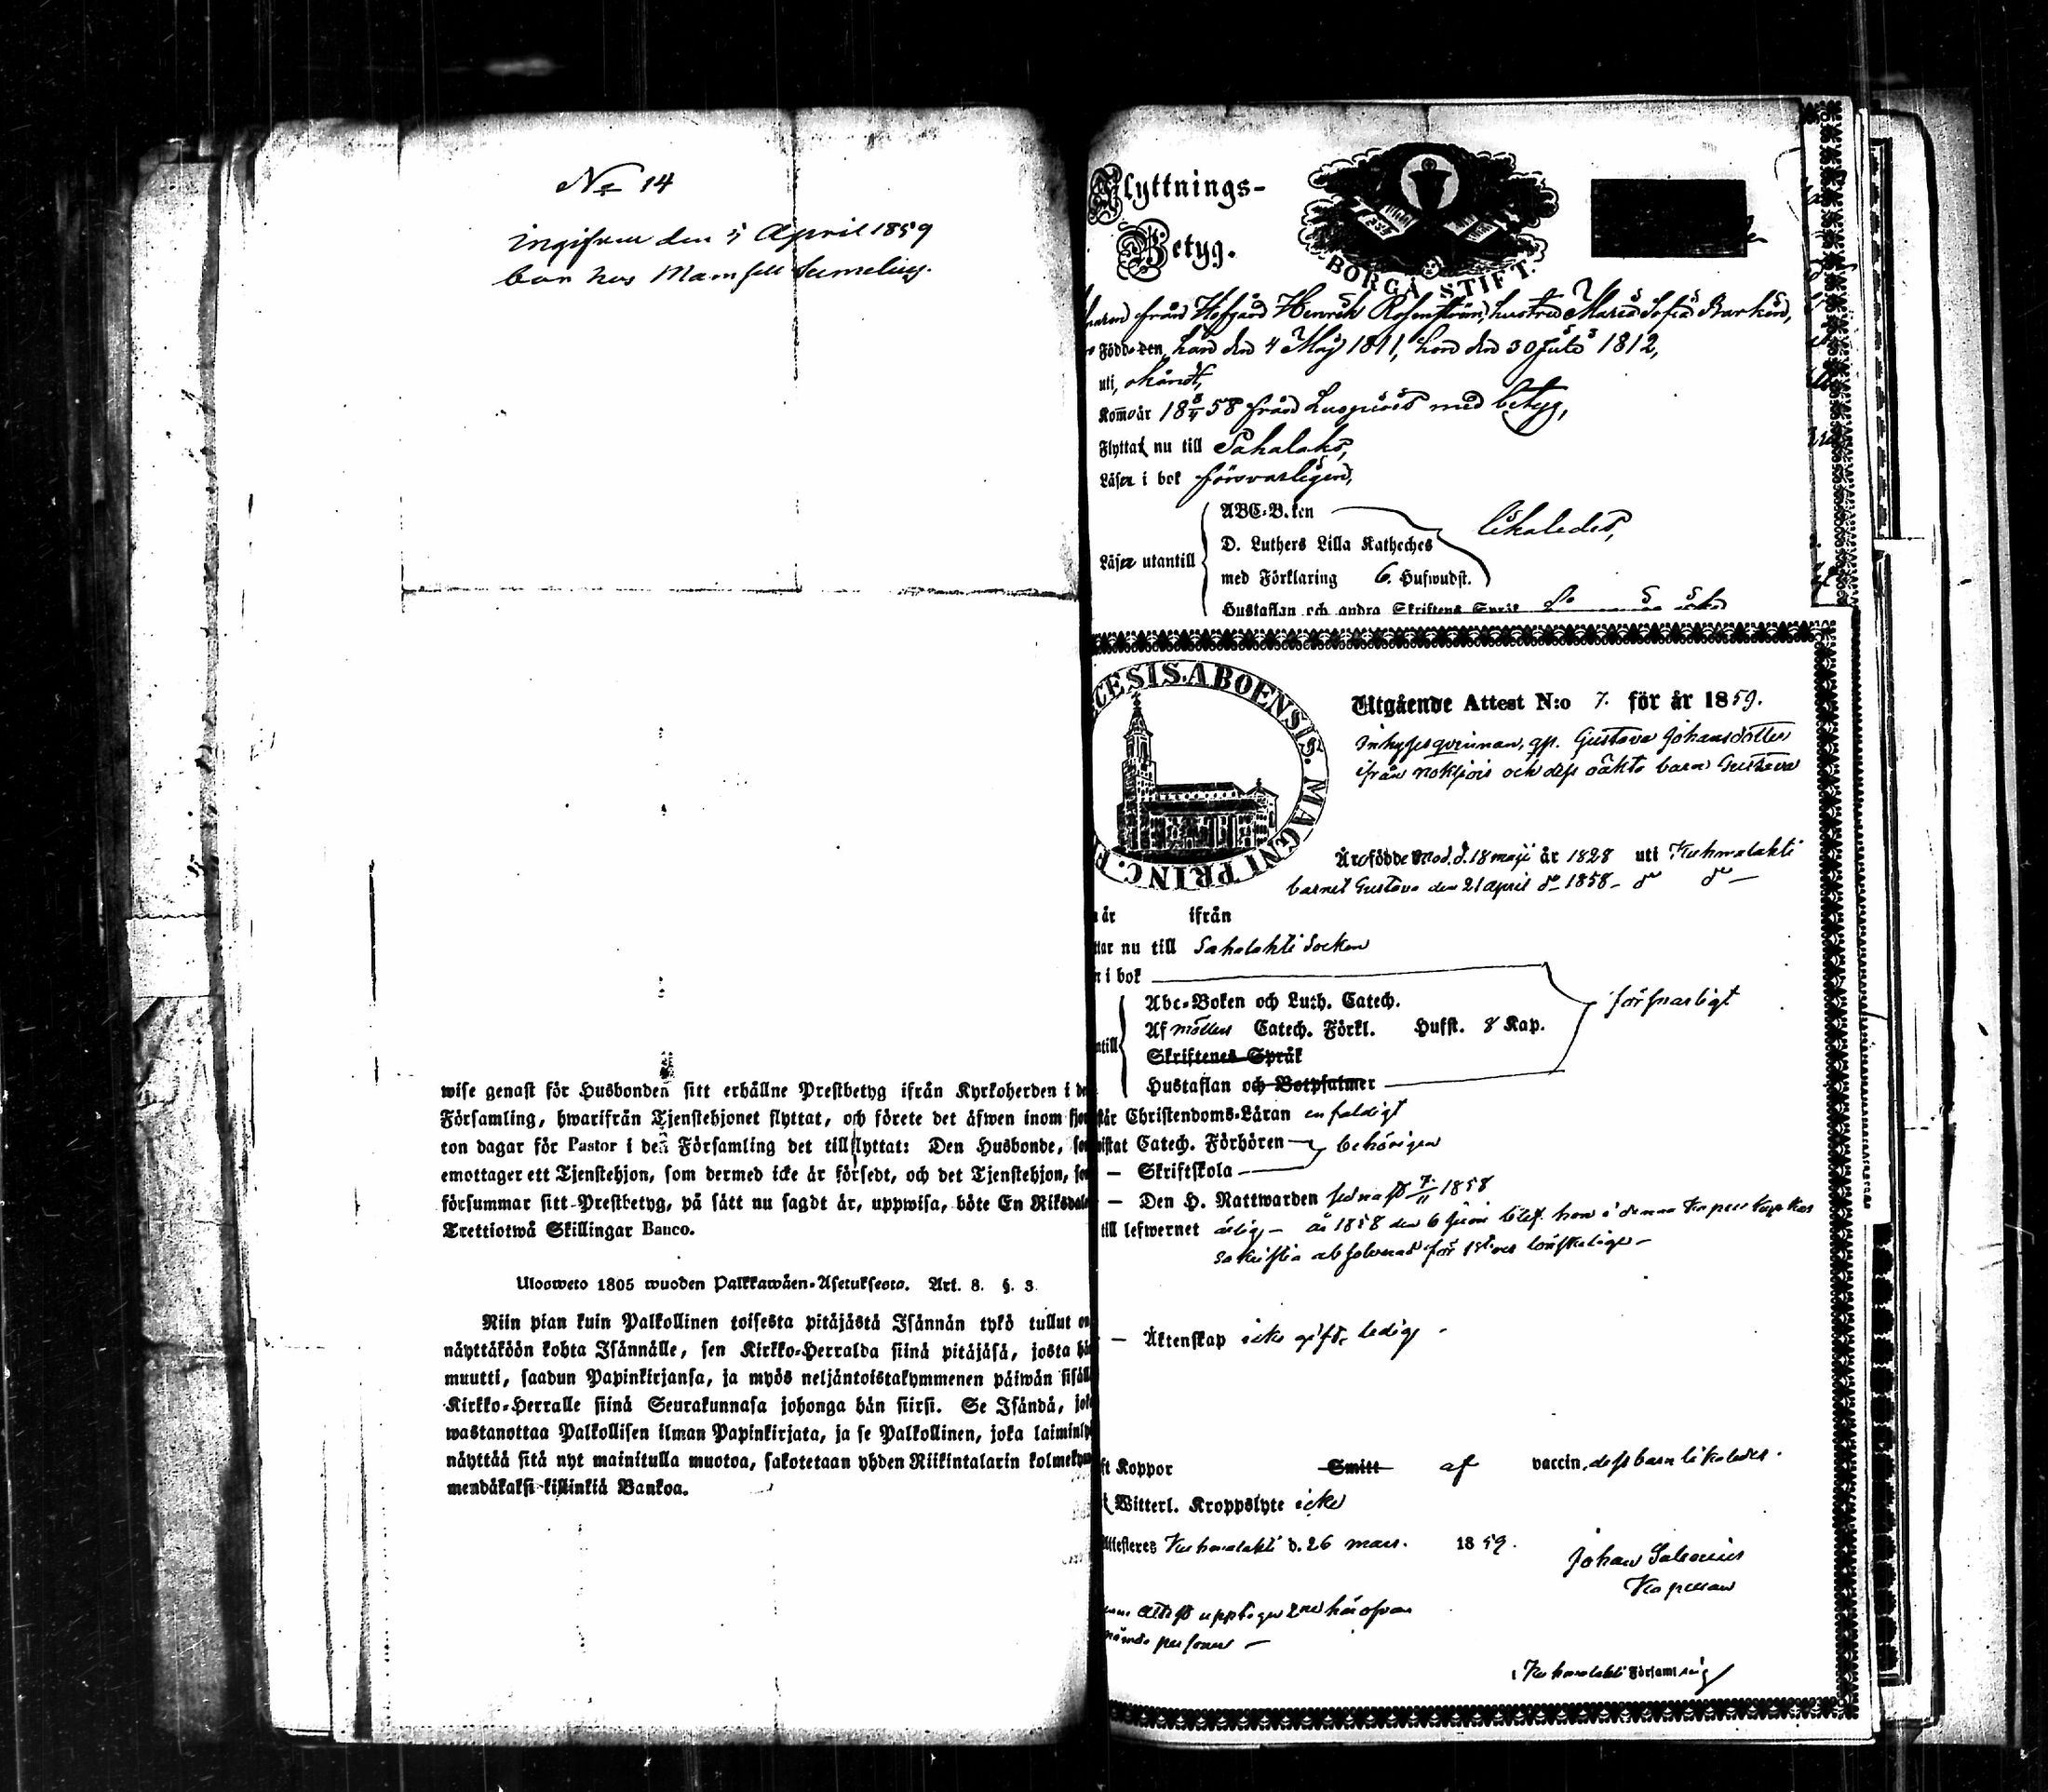 No 14
den 5 April 1859
bor hos Mamsell Sumelius.
wise genast för Husbonden sitt erhållne Prestbetyg ifrån Kyrkoherden i
Församling, hwarifrån Tjenstehjonet flyttat, och förete det äfwen inom
ton dagar för Pastor i den Församling det tillflyttat: Den Husbonde,
emottager ett Tjenstehjon, som dermed icke är försedt, och det Tjenstehjon,
försummar sitt Prestbetyg, på sätt nu sagdt är, uppwisa, böte En Riksdaler
Trettiotwå Skillingar Banco.
Ulosweto 1805 wuoden Palkkawäen-Asetuksesta. Art. 8. §. 3.
Niin pian kuin Palkollinen toisesta pitäjästä Isännän tykö tullut on
näyttäköön kohta Isännälle, sen Kirkko-Herralda siinä pitäjäsä, josta hän
muutti, saadun Papinkirjansa, ja myös neljäntoistakymmenen päiwän sisäll
Kirkko-Herralle siinä Seurakunnasa johonga hän siirsi. Se Isändä, joka
wastanottaa Palkollisen ilman Papinkirjata, ja se Palkollinen, joka laiminlyö
näyttää sitä nyt mainitulla muotoa, sakotetaan yhden Riikintalarin kolmekym
mendäkaksi killinkiä Bankoa.
Flyttnings-
Betyg.
BORGÅ STIFT.
från Hofgård Henrik Rosenström, hustru Maria Sofia
Född den han den 4 Maj 1811, hon den 30 Juli 1812,
uti, okändt,
Kom år 18 58 från med betyg,
Flyttar nu till Sahalaks,
Läser i bok försvarligen,
Läser utantill
ABC-Boken
D. Luthers Lilla Katheches
med Förklaring 6. Hufwudst.
likaledes,
Hustaflan och andra Skriftens Språk
CESIS. ABOENSIS. MAGNI PRINC. F
Utgående Attest N:o 7. för år 1859.
Inhysesqvinnan, qp. Gustava Johansdotter
ifrån och dess oäkta barn Gustava
Äro födde Mod. d. 18 maji år 1828 uti Kuhmalahti
barnet Gustava den 21 april do 1858 - do do -
år ifrån
ttar nu till Sahalahti Socken
n i bok
Abc-Boken och Luth. Catech.
Af Möllers Catech. Förkl. Hufst. 8 Kap.
försvarligt
ntill
Skriftenes Språk
Hustaflan och Botpsalmer
står Christendoms-Läran enfaldigt
wistat Catech. Förhören
behörigen
— Skriftskola
— Den H. Nattwarden sednast 7/11 1858
till lefwernet ärlig - år 1858 den 6 Juni blef hon i denna Kapell kyrkas
Sakristia absolverad för 1sta res lönskaläge -
— Äktenskap icke gift, ledig -
ft Koppor Smitt af vaccin, dess barn likaledes.
Witterl. Kroppslyte icke
Attesteras Kuhmalahti d. 26 mars. 1859.
Johan Salonius
Kapellan
Attest upptager 2ne härofvan
nämnde personer -
Kuhmalahti Församling